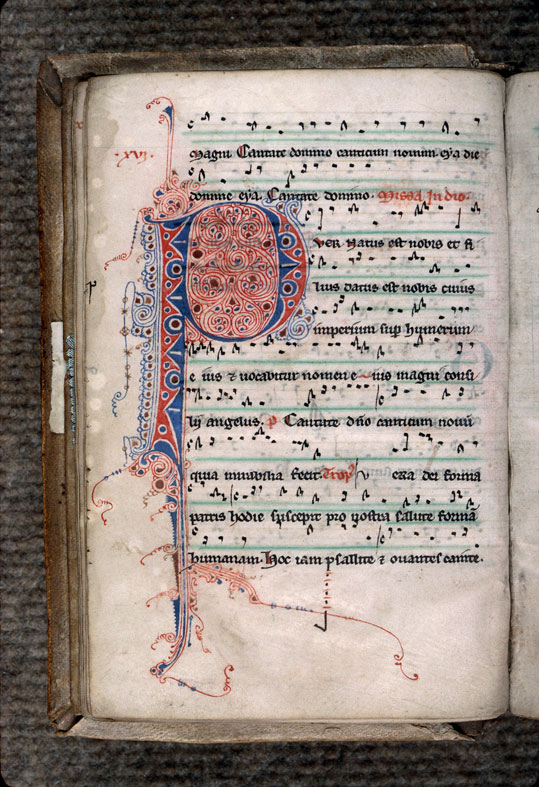 magni Cantate domino canticum nouum. eya die
.xvi.
domine eya. Cantate domino. Missa In die.
P VER Natus est nobis et fi
lius datus est nobis cuius
imperium sup humerum
e ius ⁊ uocabitur nomen e ius magni consi
lij angelus. p Cantate dño canticum nouũ
quia mirabilia fecit. Trop era dei forma
patris hodie suscepit pro nostra salute formã
humanam. Hoc iam psallite ⁊ ouantes canite.